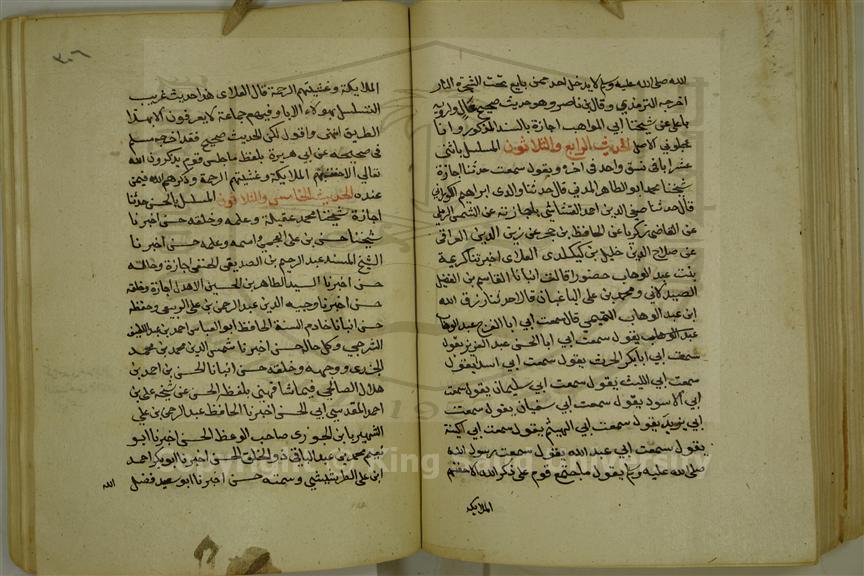 الله صلى الله عليه وسلم لا يدخل احد ممن بايع تحت الشجرة النار
اخرجه الترمذي وقال ابن ناصر وهو حديث صحيح عال وارويه
باعلى عن شيخنا ابي المواهب اجازة بالسند المذكور وانا
حنبلي كالاصل الحديث الرابع والثلاثون المسلسل باثنى
عشر ابا في نسق واحد في اخره ويقول سمعت حدثنا اجازة
شيخنا محمد ابو الطاهر المدني قال حدثنا والدي ابراهيم الكوراني
قال حدثنا صفي الدين احمد القشاشي باجازته عن الشمس الرملي
عن القاضي زكريا عن الحافظ بن حجر عن زين الدين العراقي
عن صلاح الدين خليل بن كيكلدي العلاي اخبرتنا كريمة
بنت عبد الوهاب حضورا قالت انبانا القاسم بن الفضل
الصيدلاني ومحمد بن علي الباغبان قالا حدثنا رزق الله
ابن عبد الوهاب التميمي قال سمعت ابي ابا الفرج عبد الوهاب
يقول سمعت ابي ابا الحسن عبد العزيز يقول
سمعت ابي ابا بكر الحرث يقول سمعت ابي اسد يقول
سمعت ابي الليث يقول سمعت ابي سليمان يقول سمعت
ابي الاسود يقول سمعت ابي سفيان يقول سمعت
ابي يزيد يقول سمعت ابي الهيثم يقول سمعت ابي اكينة
يقول سمعت ابي عبد الله يقول سمعت رسول الله
صلى الله عليه وسلم يقول ما اجتمع قوم على ذكر الله الا حفتهم
الملايكة
٣٠٦
الملايكة وغشيتهم الرحمة قال العلاي هذا حديث غريب
التسلسل بهولاء الابا وفيهم جماعة لا يعرفون الا بهذا
الطريق انتهى واقول لكن الحديث صحيح فقد اخرجه مسلم
في صحيحه عن ابي هريرة بلفظ ما جلس قوم يذكرون الله
تعالى الا حفتهم الملايكة وغشيتهم الرحمة وذكرهم الله فيمن
عنده الحديث الخامس والثلاثون المسلسل بالحسن حدثنا
اجازة شيخنا محمد عقيلة وعلمه وخلقه حسن اخبرنا
شيخنا حسن بن علي العجمي واسمه وعلمه حسن اخبرنا
الشيخ المسند عبد الرحيم بن الصديق الحنفي اجازة وخلقه
حسن اخبرنا السيد الطاهر بن الحسين الاهدل اجازة وخلقه
حسن اخبرنا وجيه الدين عبد الرحمن بن علي الربيع وحفظه
حسن انبانا خادم السنة الحافظ ابو العباس احمد بن عبد اللطيف
الشرجي وكل حاله حسن اخبرنا شمس الدين محمد بن محمد
الجزري ووجهه وخلقه حسن انبانا الحسن بن احمد بن
هلال الصالحي فيما شافهني بلفظه الحسن عن شيخه علي بن
احمد المقدسي ابي الحسن اخبرنا الحافظ عبد الرحمن بن علي
الشهير بابن الجوزي صاحب الوعظ الحسن اخبرنا ابو
محمد بن عبد الباقي ذو الخلق الحسن اخبرنا ابو بكر احمد
ابن علي الطريثيثي وسمته حسن اخبرنا ابو سعيد فضل
الله